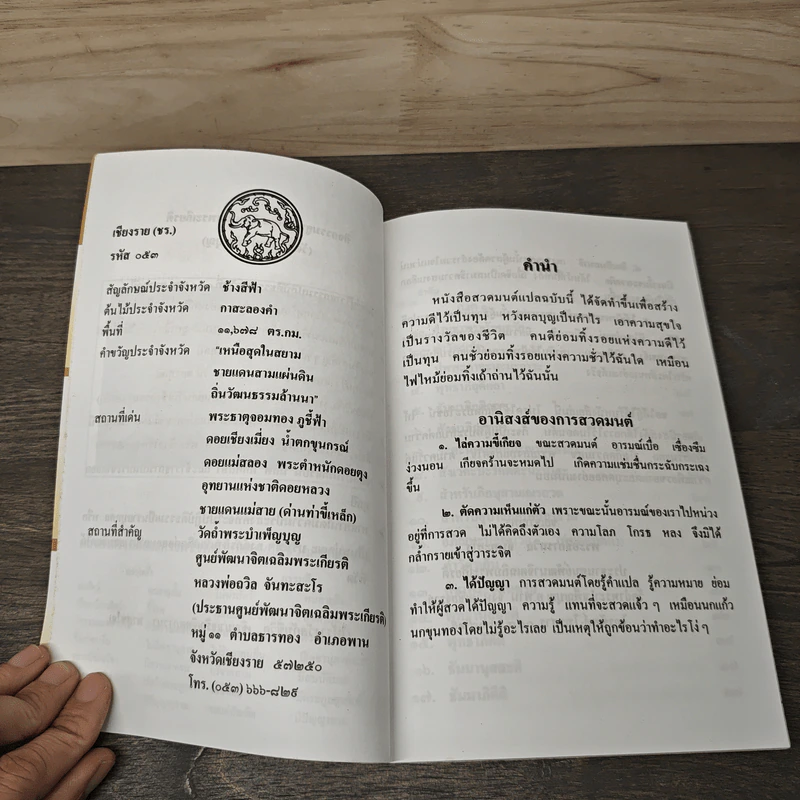 เชียงราย (ชร.)
รหัส ๐๕๓
สัญลักษณ์ประจำจังหวัด ช้างสีฟ้า
ต้นไม้ประจำจังหวัด กาสะลองคำ
พื้นที่ ๑๑,๖๗๘ ตร.กม.
คำขวัญประจำจังหวัด "เหนือสุดในสยาม
ชายแดนสามแผ่นดิน
ถิ่นวัฒนธรรมล้านนา"
สถานที่เด่น พระธาตุจอมทอง ภูชี้ฟ้า
ดอยเชียงเมี่ยง น้ำตกขุนกรณ์
ดอยแม่สลอง พระตำหนักดอยตุง
อุทยานแห่งชาติดอยหลวง
ชายแดนแม่สาย (ด่านท่าขี้เหล็ก)
สถานที่สำคัญ วัดถ้ำพระบำเพ็ญบุญ
ศูนย์พัฒนาจิตเฉลิมพระเกียรติ
หลวงพ่อถวิล จันทะสะโร
(ประธานศูนย์พัฒนาจิตเฉลิมพระเกียรติ)
หมู่ ๑๑ ตำบลธารทอง อำเภอพาน
จังหวัดเชียงราย ๕๗๒๕๐
โทร. (๐๕๓) ๖๖๖-๘๒๙
คำนำ
หนังสือสวดมนต์แปลฉบับนี้ ได้จัดทำขึ้นเพื่อสร้าง
ความดีไว้เป็นทุน หวังผลบุญเป็นกำไร เอาความสุขใจ
เป็นรางวัลของชีวิต คนดีย่อมทิ้งรอยแห่งความดีไว้
เป็นทุน คนชั่วย่อมทิ้งรอยแห่งความชั่วไว้ฉันใด เหมือน
ไฟไหม้ย่อมทิ้งเถ้าถ่านไว้ฉันนั้น
อานิสงส์ของการสวดมนต์
๑. ไล่ความขี้เกียจ ขณะสวดมนต์ อารมณ์เบื่อ เซื่องซึม
ง่วงนอน เกียจคร้านจะหมดไป เกิดความแช่มชื่นกระฉับกระเฉง
ขึ้น
๒. ตัดความเห็นแก่ตัว เพราะขณะนั้นอารมณ์ของเราไปหน่วง
อยู่ที่การสวด ไม่ได้คิดถึงตัวเอง ความโลภ โกรธ หลง จึงมิได้
กล้ำกรายเข้าสู่วาระจิต
๓. ได้ปัญญา การสวดมนต์โดยรู้คำแปล รู้ความหมาย ย่อม
ทำให้ผู้สวดได้ปัญญา ความรู้ แทนที่จะสวดแจ้ว ๆ เหมือนนกแก้ว
นกขุนทองโดยไม่รู้อะไรเลย เป็นเหตุให้ถูกข้อนว่าทำอะไรโง่ ๆ